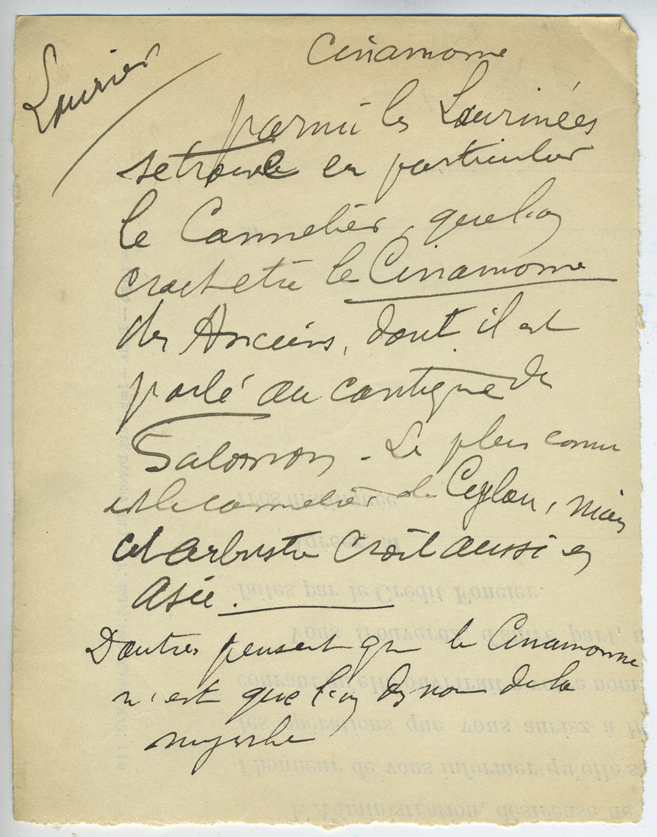 Laurier
Cinamome
parmi les Laurinées
se trouve en particulier
le Cannelier, que l'on
croit etre le Cinamome
des Anciens, dont il est
parlé au cantique de
Salomon - Le plus connu
est le cannelier de Ceylan, mais
cet arbuste croit aussi en
Asie.
D'autres pensent que le Cinamome
n'est que l'un des noms de la
myrrhe